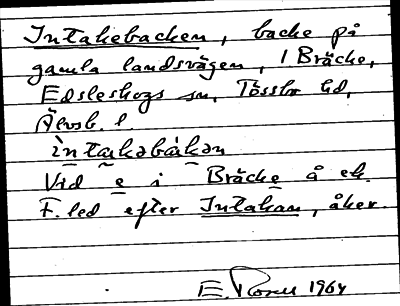 Intakebacken, backe på
gamla landsvägen, i Bräcke,
Edsleskogs sn, Tössbo hd,
Älvsb. l.
ìntakəbàkən
Vid e i Bräcke å ek.
F. led efter Intakan, åker.
E. Rosell 1964